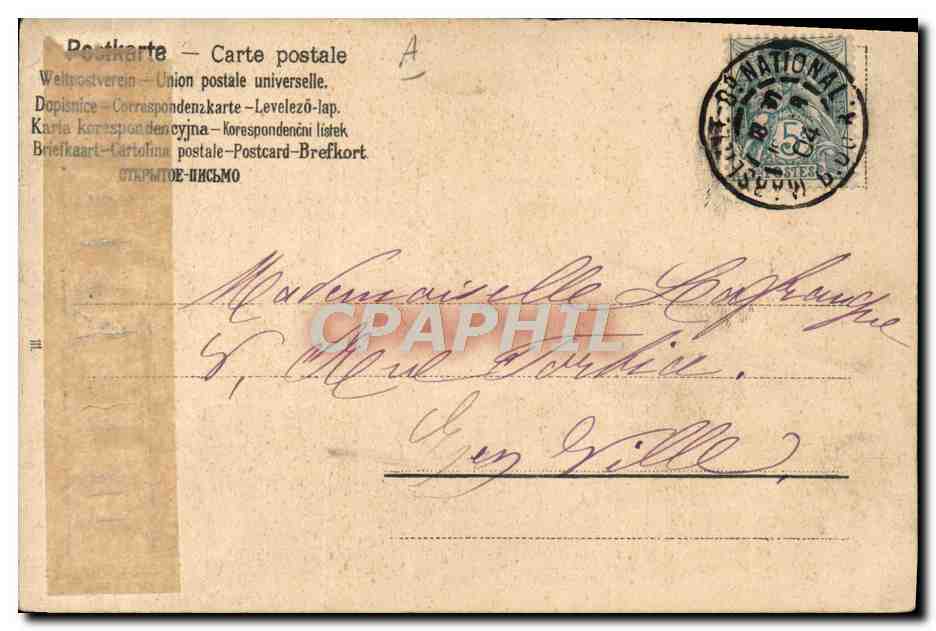 Postkarte — Carte postale
A
Weltpostverein — Union postale universelle.
Dopisnice — Correspondenzkarte — Levelező-lap.
Karta korespondencyjna — Korespondenční lístek
Briefkaart — Cartolina postale — Postcard — Brefkort.
ОТКРЫТОЕ-ПИСЬМО
MARSEILLE Bd NATIONAL
B. DU R.
04
5
POSTES
Mademoiselle Lagrange
8, Rue
En Ville,
III.
CPAPHIL